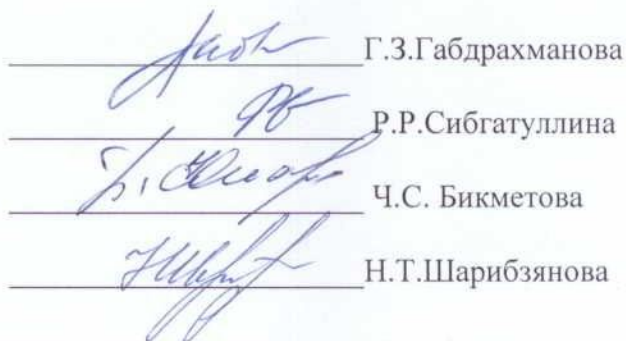 Г.З.Габдрахманова
Р.Р.Сибгатуллина
Ч.С. Бикметова
Н.Т.Шарибзянова